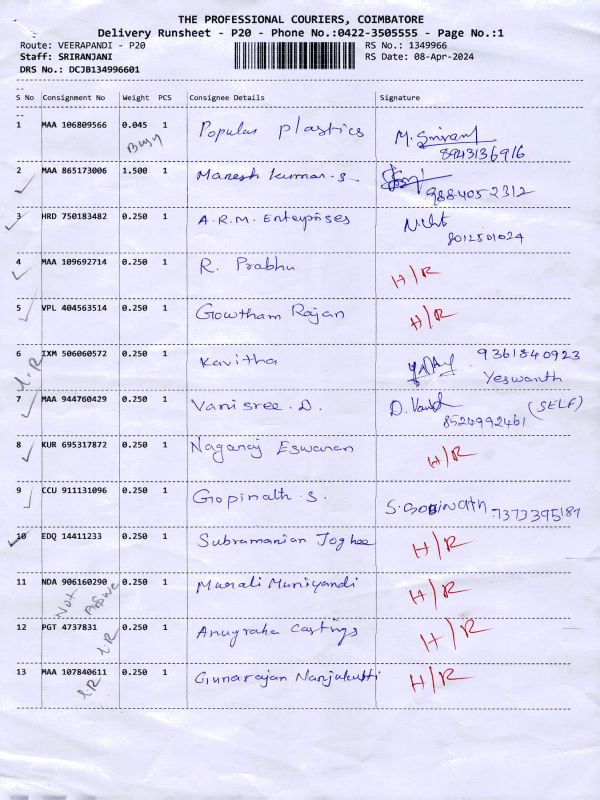 THE PROFESSIONAL COURIERS, COIMBATORE
Delivery Runsheet - P20 - Phone No.:0422-3505555 - Page No.:1
Route: VEERAPANDI - P20 RS No.: 1349966
Staff: SRIRANJANI RS Date: 08-Apr-2024
DRS No.: DCJB134996601
S No Consignment No Weight PCS Consignee Details Signature
1 MAA 106809566 0.045 1 Popular plastics M.
Busy 8943136916
2 MAA 865173006 1.500 1 Maresh kumar.s. 9884052312
3 HRD 750183482 0.250 1 A.R.M. Enterprises
8012501024
4 MAA 109692714 0.250 1 R. Prabhu H/R
5 VPL 404563514 0.250 1 Gowtham Rajan H/R
6 IXM 506060572 0.250 1 Kavitha 9361840923
I.R Yeswanth
7 MAA 944760429 0.250 1 Vanisree.D. D. (SELF)
8524992461
8 KUR 695317872 0.250 1 Nagaraj Eswaran H/R
9 CCU 911131096 0.250 1 Gopinath.s. S.GOBINATH 7373395187
10 EDQ 14411233 0.250 1 Subramanian Joghee H/R
11 NDA 906160290 0.250 1 Murali Muniyandi H/R
Not
12 PGT 4737831 0.250 1 Anugraha Castings H/R
I.R
13 MAA 107840611 0.250 1 Gunarajan Nanjukutti H/R
I.R